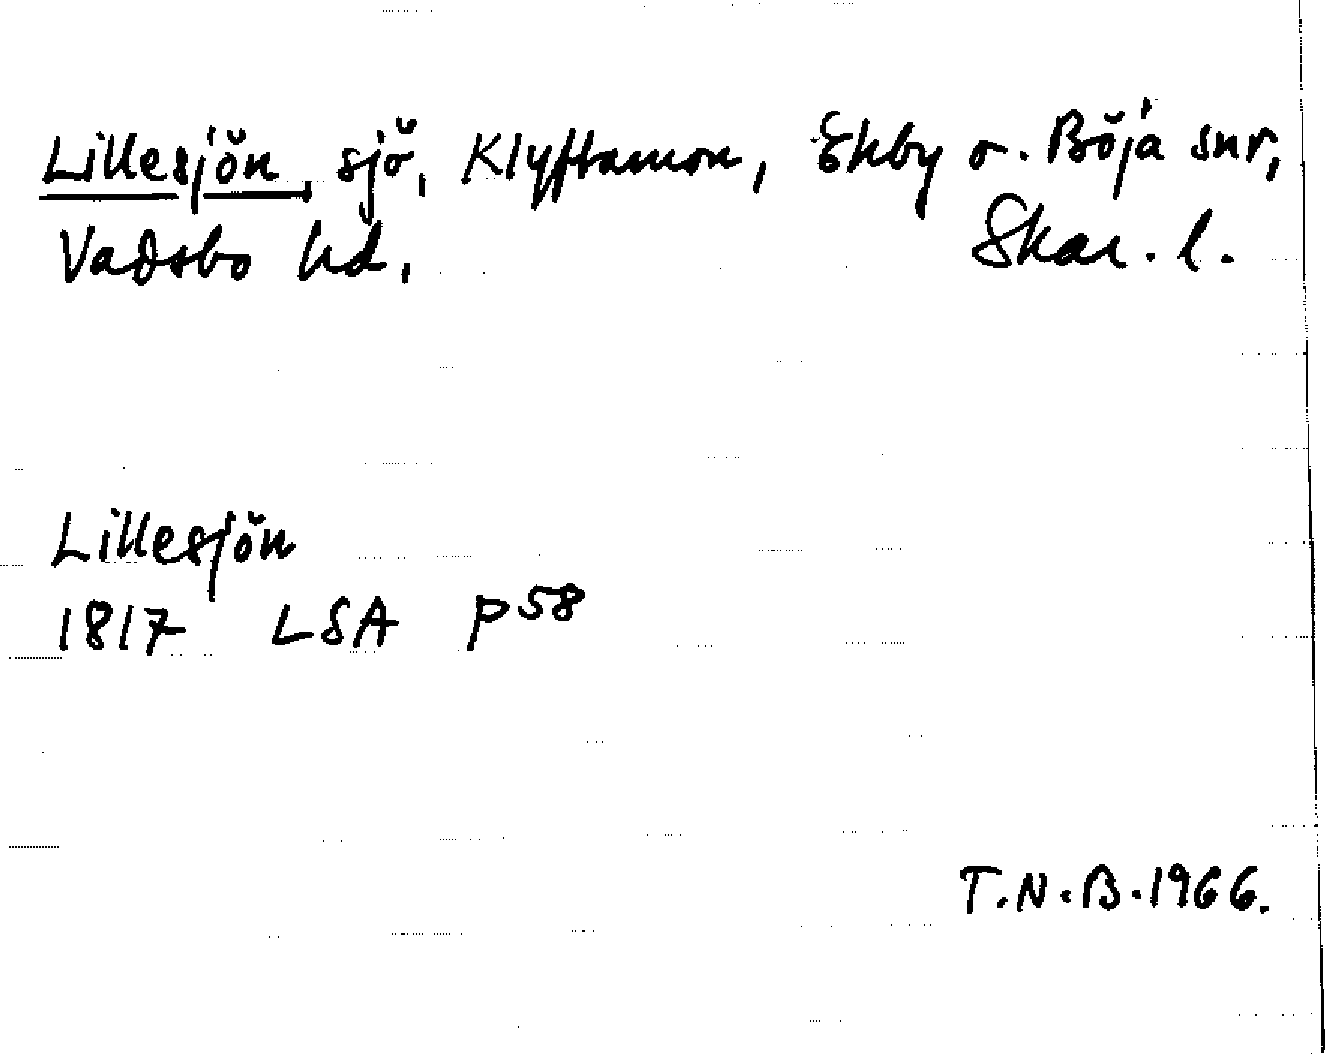 Lillesjön, sjö, Klyftamon, Ekby o. Böja snr,
Vadsbo hd, Skar. l.
Lillesjön
1817 LSA p 58
T.N.B. 1966.